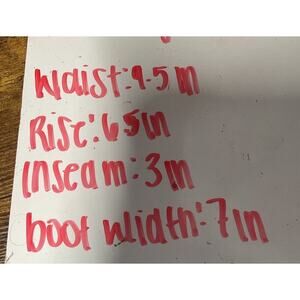 Waist: 9.5 in
Rise: 6.5 in
inseam: 3 in
boot width: 7 in